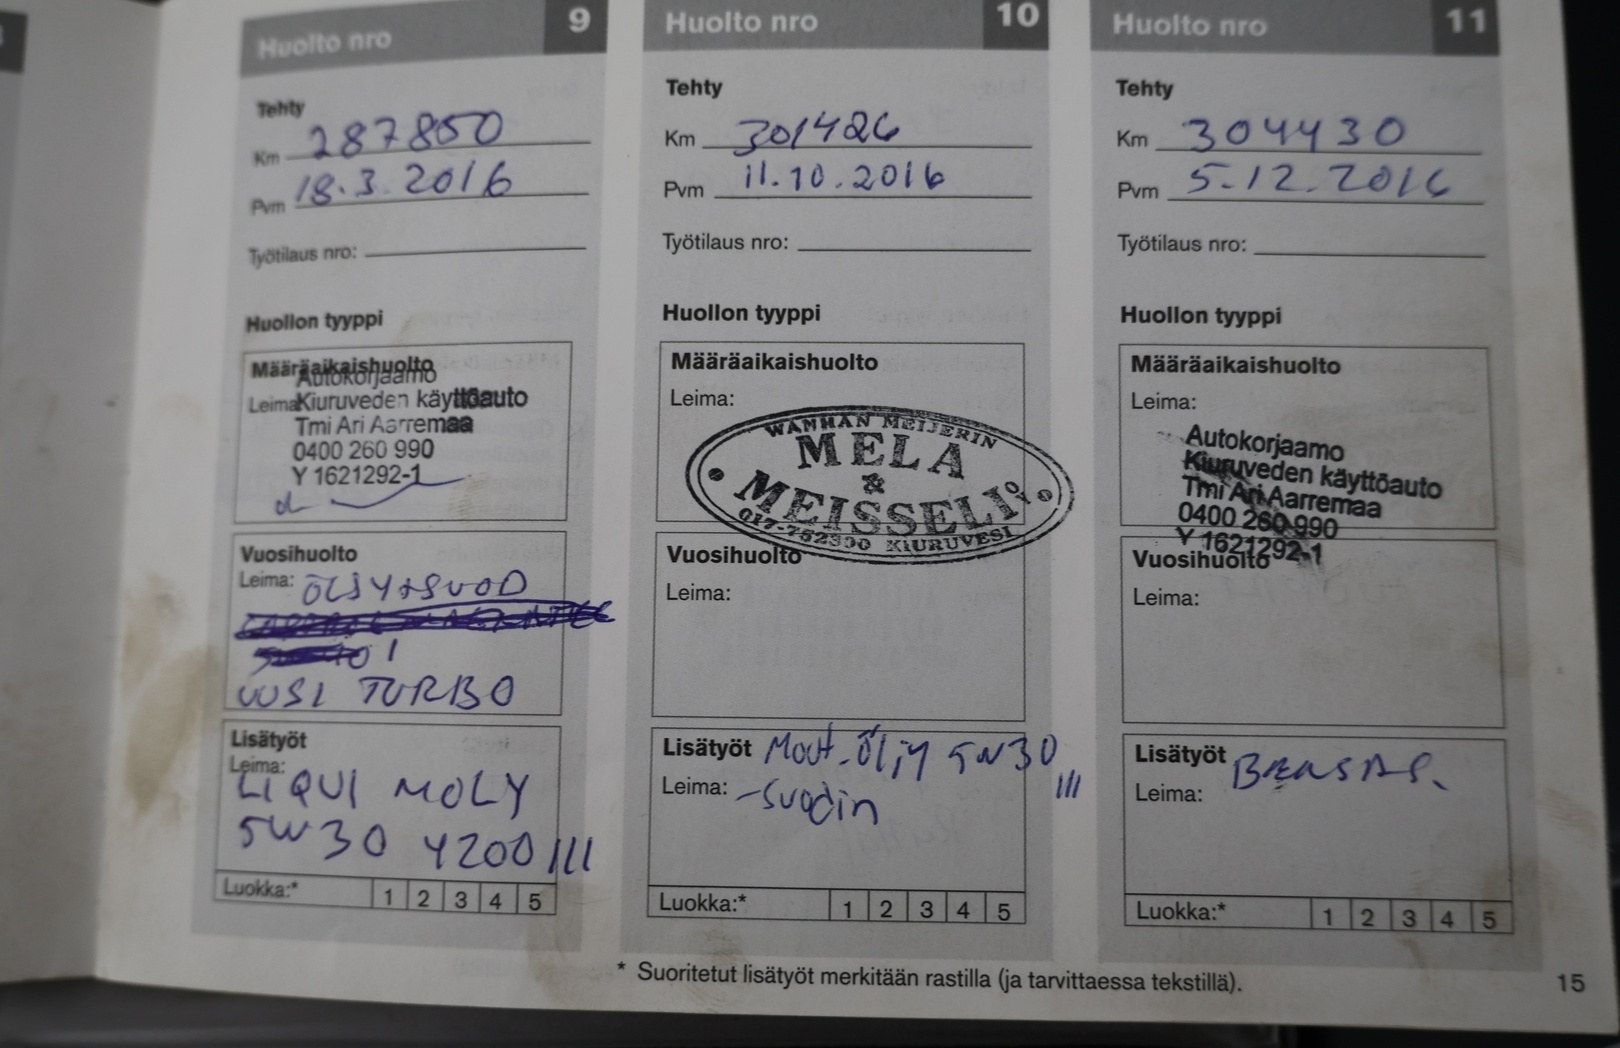 Huolto nro 9
Tehty
Km 287850
Pvm 18.3.2016
Työtilaus nro:
Huollon tyyppi
Määräaikaishuolto
Leima:
Autokorjaamo
Kiuruveden käyttöauto
Tmi Ari Aarremaa
0400 260 990
Y 1621292-1
Vuosihuolto
Leima: ÖLJY+SUOD
UUSI TURBO
Lisätyöt
Leima:
LIQUI MOLY
5W30 4200 III
Luokka:* 1 2 3 4 5
Huolto nro 10
Tehty
Km 301426
Pvm 11.10.2016
Työtilaus nro:
Huollon tyyppi
Määräaikaishuolto
Leima:
WANHAN MEIJERIN
MELA
&
MEISSELI OY
017-752300 KIURUVESI
Vuosihuolto
Leima:
Lisätyöt Moot.Öljy 5W30
Leima: -suodin III
Luokka:* 1 2 3 4 5
Huolto nro 11
Tehty
Km 304430
Pvm 5.12.2016
Työtilaus nro:
Huollon tyyppi
Määräaikaishuolto
Leima:
Autokorjaamo
Kiuruveden käyttöauto
Tmi Ari Aarremaa
0400 260 990
Y 1621292-1
Vuosihuolto
Leima:
Lisätyöt
Leima:
Luokka:* 1 2 3 4 5
* Suoritetut lisätyöt merkitään rastilla (ja tarvittaessa tekstillä).
15